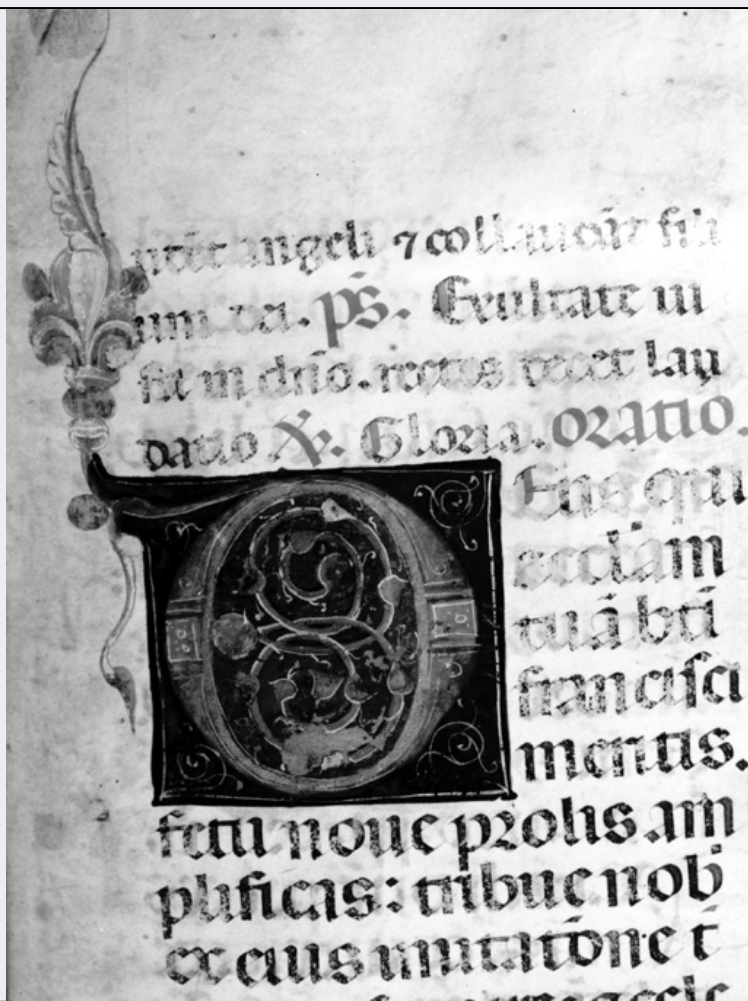 angeli ⁊ collaudāt fili
um dei. p̄s. Exultate iu
sti in dn̄o. rectos decet lau
datio ℣. Gloria. oratio.
Deus qui
ecclām
tuā bt̄i
francisci
meritis.
fetu noue prolis am
plificas: tribue nob̄
ex eius imitatōne t̄